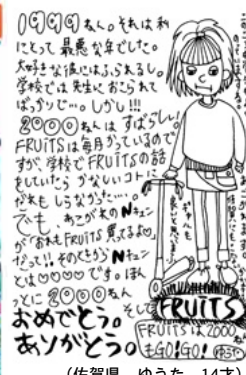 1999ねん。それは私
にとって最悪な年でした。
大好きな彼にはふられるし。
学校では先生におこられて
ばっかりで… しかし!!!
2000ねんはすばらしい!
FRUiTSは毎月かっているので
すが、学校でFRUiTSの話
をしていたら かなしいコトに
だれもしらなかった…。
でも、あこがれのNキュン
が「おれもFRUiTS買ってるよ」
だって!! そのときからNキュン
とは♡♡♡♡です。ほん
っとに2000ねん
おめでとう。そして
ありがとう。
FRUiTS
FRUiTSは2000
もGO!GO!
(佐賀県 ゆうた 14才)